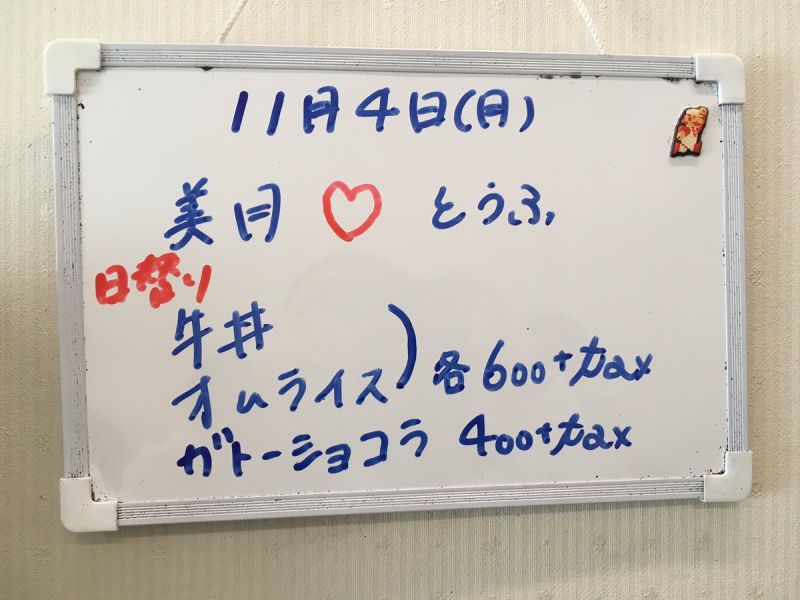 11月4日(月)
美月 ♡ とうふ
日替り
牛丼
オムライス) 各600+tax
ガトーショコラ 400+tax